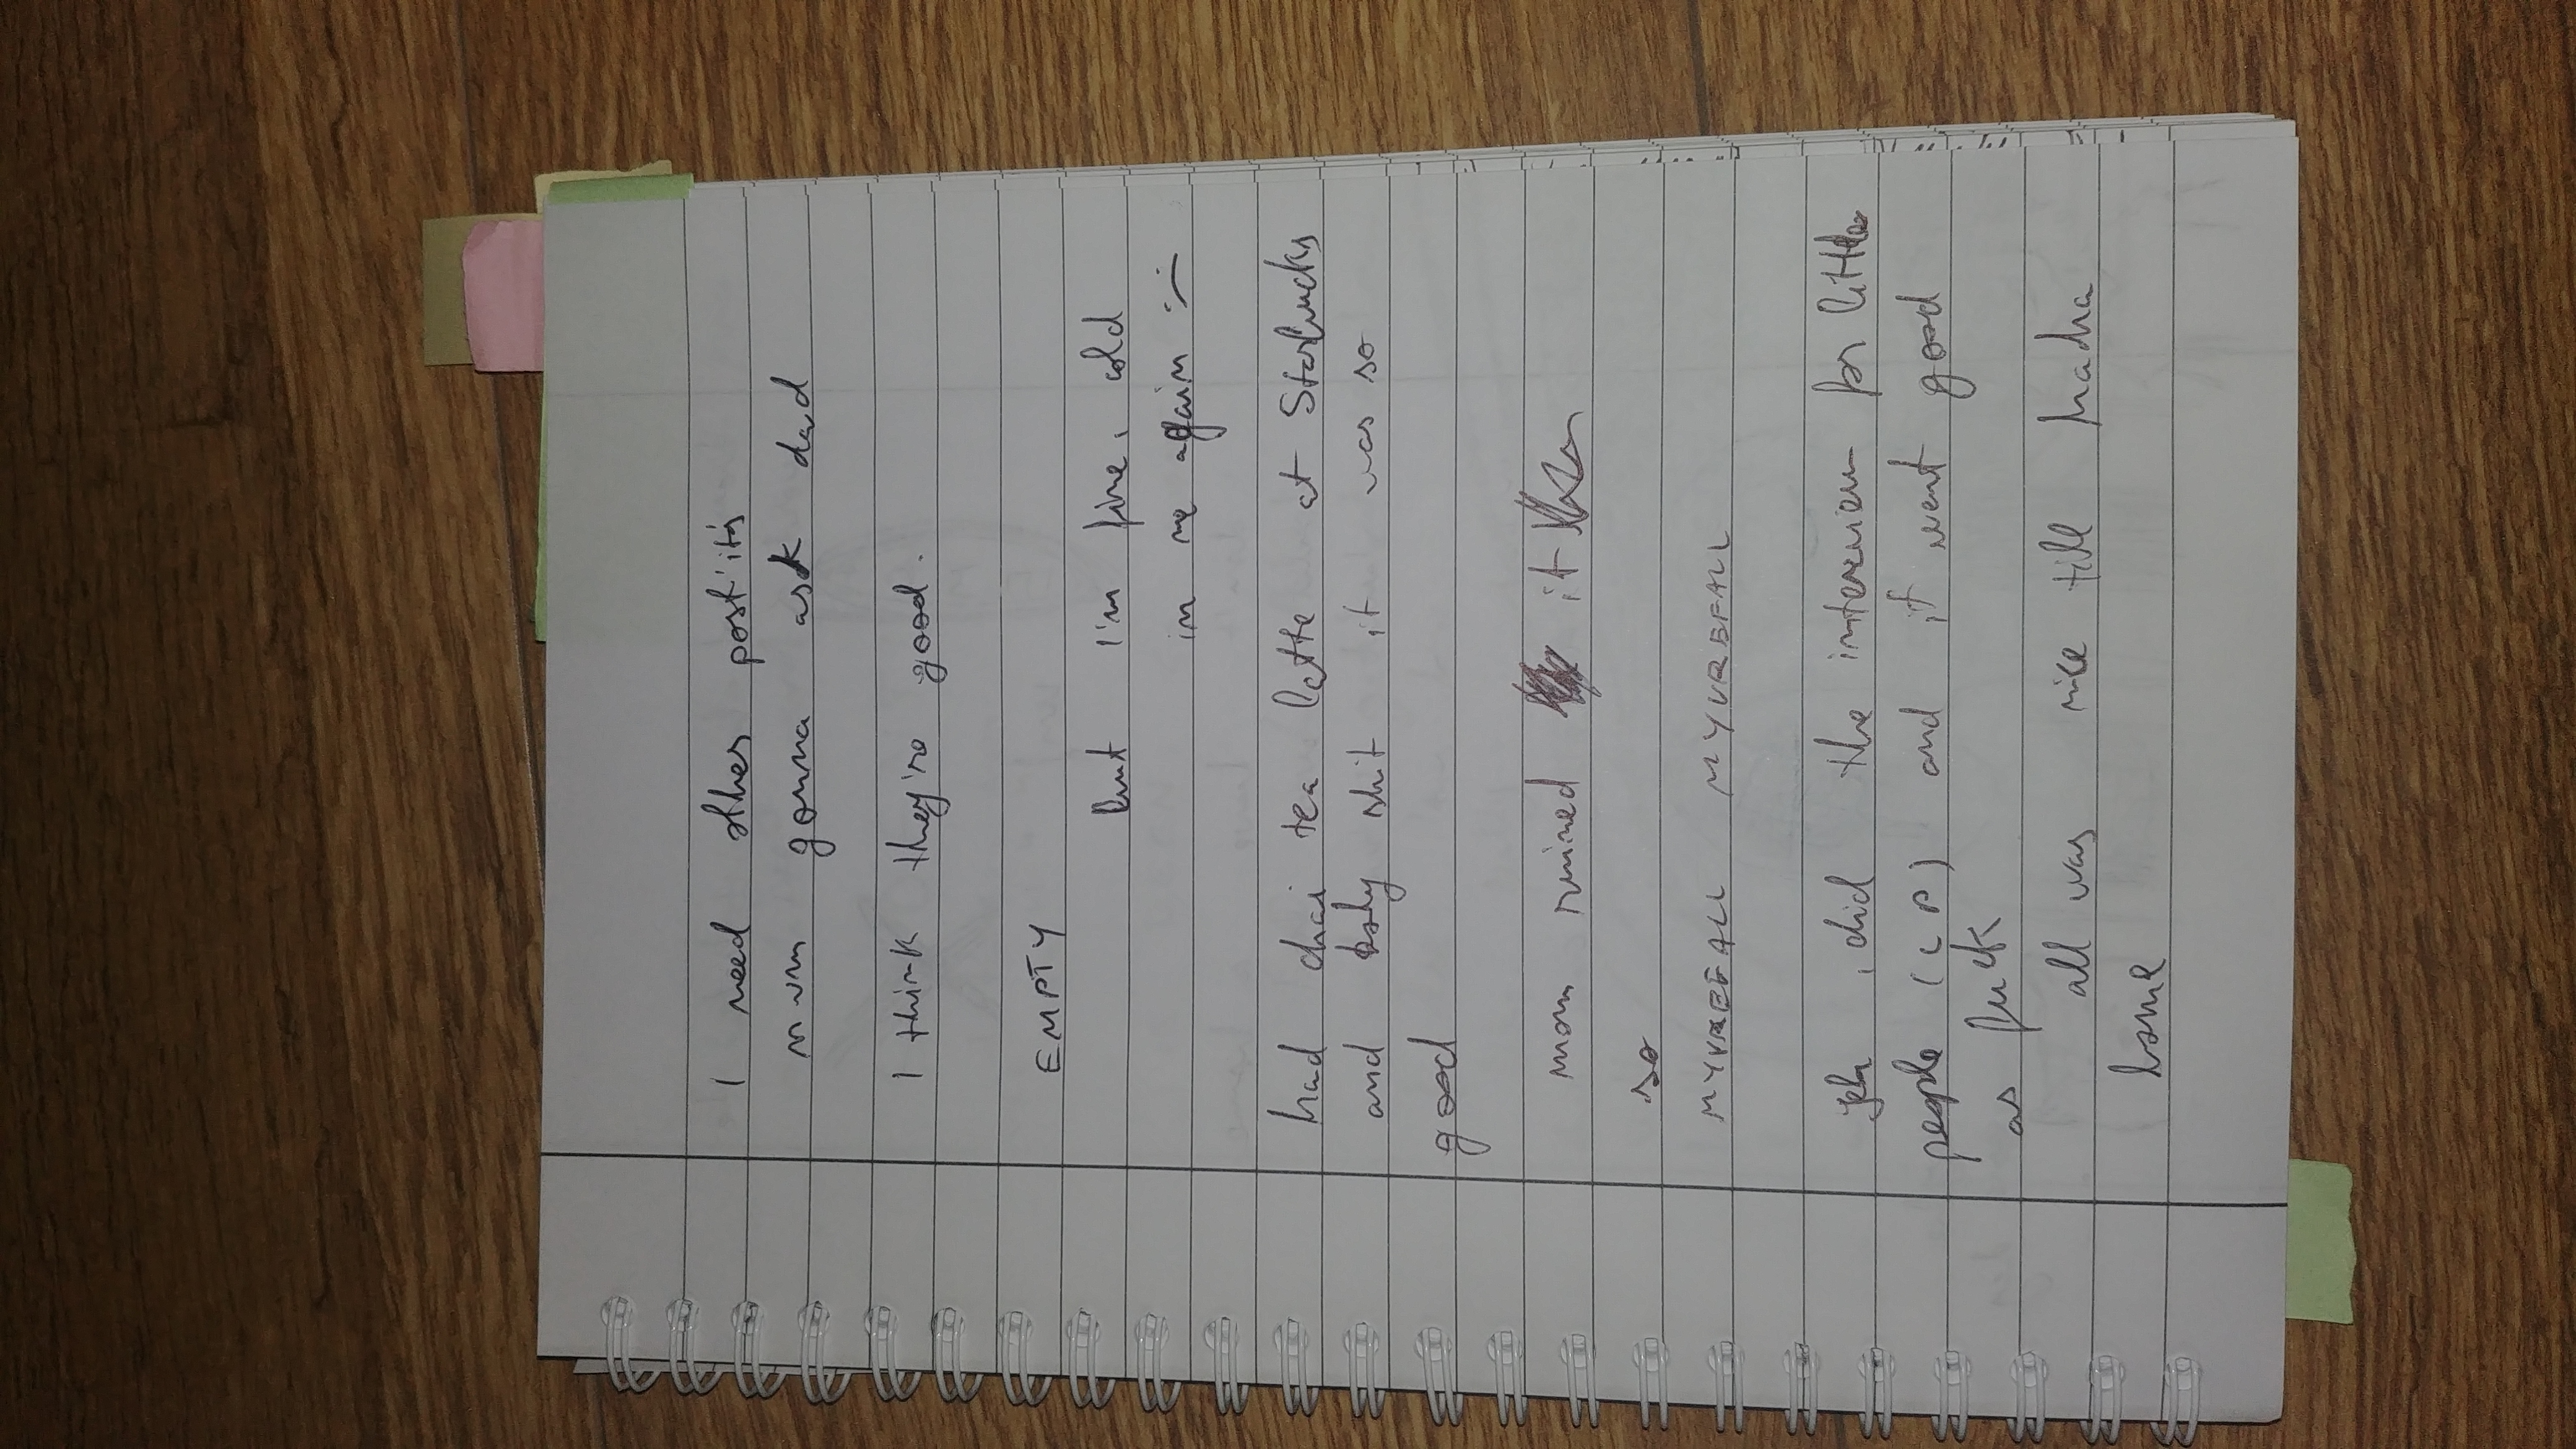 I need other post'it's
mum gonna ask dad
I think they're good.
EMPTY
but I'm fine, cold
in me again :(
had chai tea latte at Starbucks
and holy shit it was so
good
mom ruined it
so
MYVREFALL MYVREFALL
yeh, did the interview for little
people (LP) and it went good
as fuck
all was nice till
home